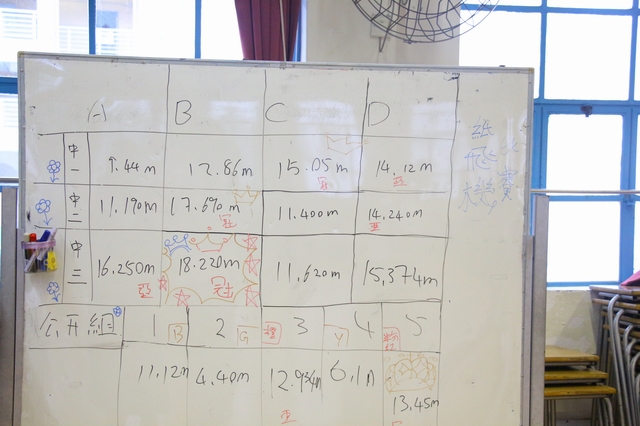 A B C D
中一 9.44m 12.86m 15.05m 冠 14.12m 亞
中二 11.190m 17.690m 冠 11.400m 14.240m 亞
中三 16.250m 亞 18.220m 冠 11,620m 15,374m
公開組 1 B 2 G 3 Y 4 5
11.12m 4.40m 12.934m 6.1m 13,45m
亞
紙飛機比賽